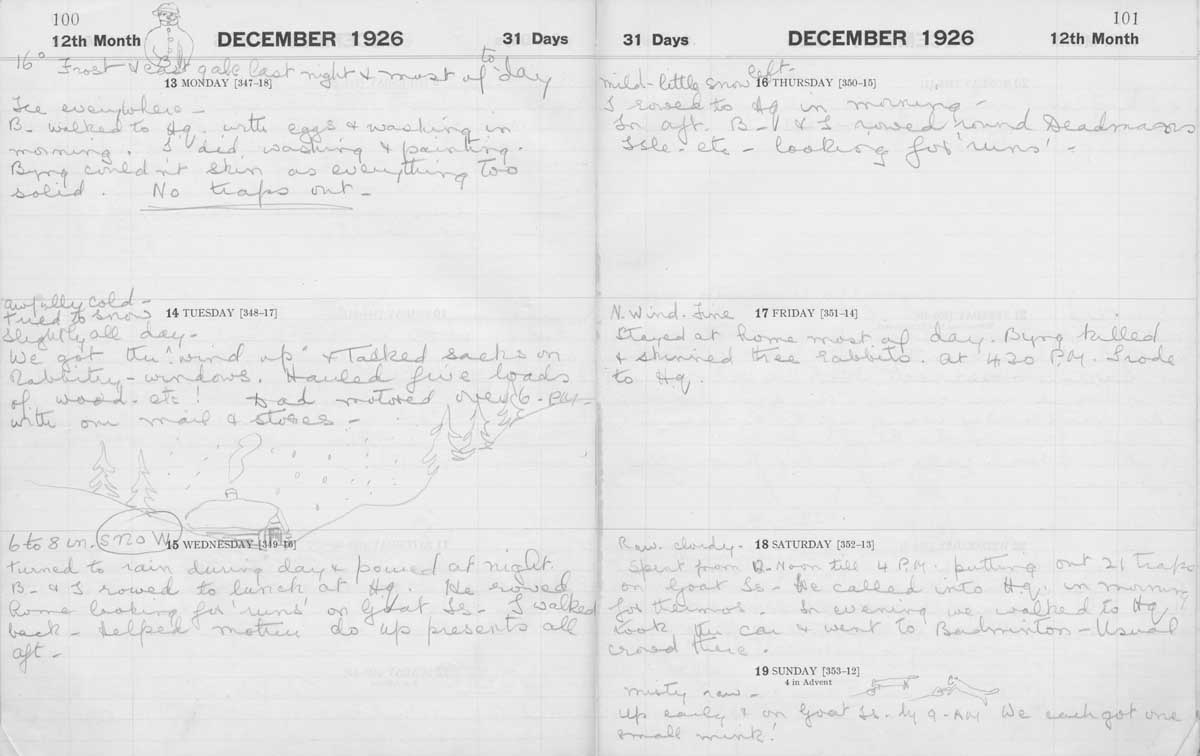 100
12th Month
DECEMBER 1926
31 Days
16° Frost & east gale last night & most of to day
13 MONDAY [347-18]
Ice everywhere -
B- walked to Hq. with eggs & washing in
morning. I did washing & painting.
Byng couldn't skin as everything too
solid. No traps out -
awfully cold -
tried to snow
slightly all day -
14 TUESDAY [348-17]
We got the "wind up" & Tacked sacks on
Rabbitry - windows. Hauled five loads
of wood. etc! Dad motored over 6 - P.M -
with our mail & stores -
6 to 8 in. snow
15 WEDNESDAY [349-16]
turned to rain during day & poured at night.
B- & I rowed to lunch at Hq. He rowed
home looking for 'runs' on Goat Is - I walked
back - helped mother do up presents all
aft -
101
31 Days
DECEMBER 1926
12th Month
mild - little snow left.
16 THURSDAY [350-15]
I rowed to Hq in morning -
In aft. B - & I rowed round Deadmans
Isle. etc - looking for 'runs' -
N. Wind. Fine
17 FRIDAY [351-14]
Stayed at home most of day. Byng killed
& skinned three rabbits. at 4.20 P.M. I rode
to Hq.
Raw. cloudy -
18 SATURDAY [352-13]
Spent from 12 - Noon till 4 P.M. putting out 21 traps
on Goat Is - We called into H.q. in morning
for thermos. In evening we walked to Hq
took the car & went to Badminton - Usual
crowd there.
19 SUNDAY [353-12]
4 in Advent
misty raw -
up early & on Goat Is - by 9 - AM We each got one
small mink!